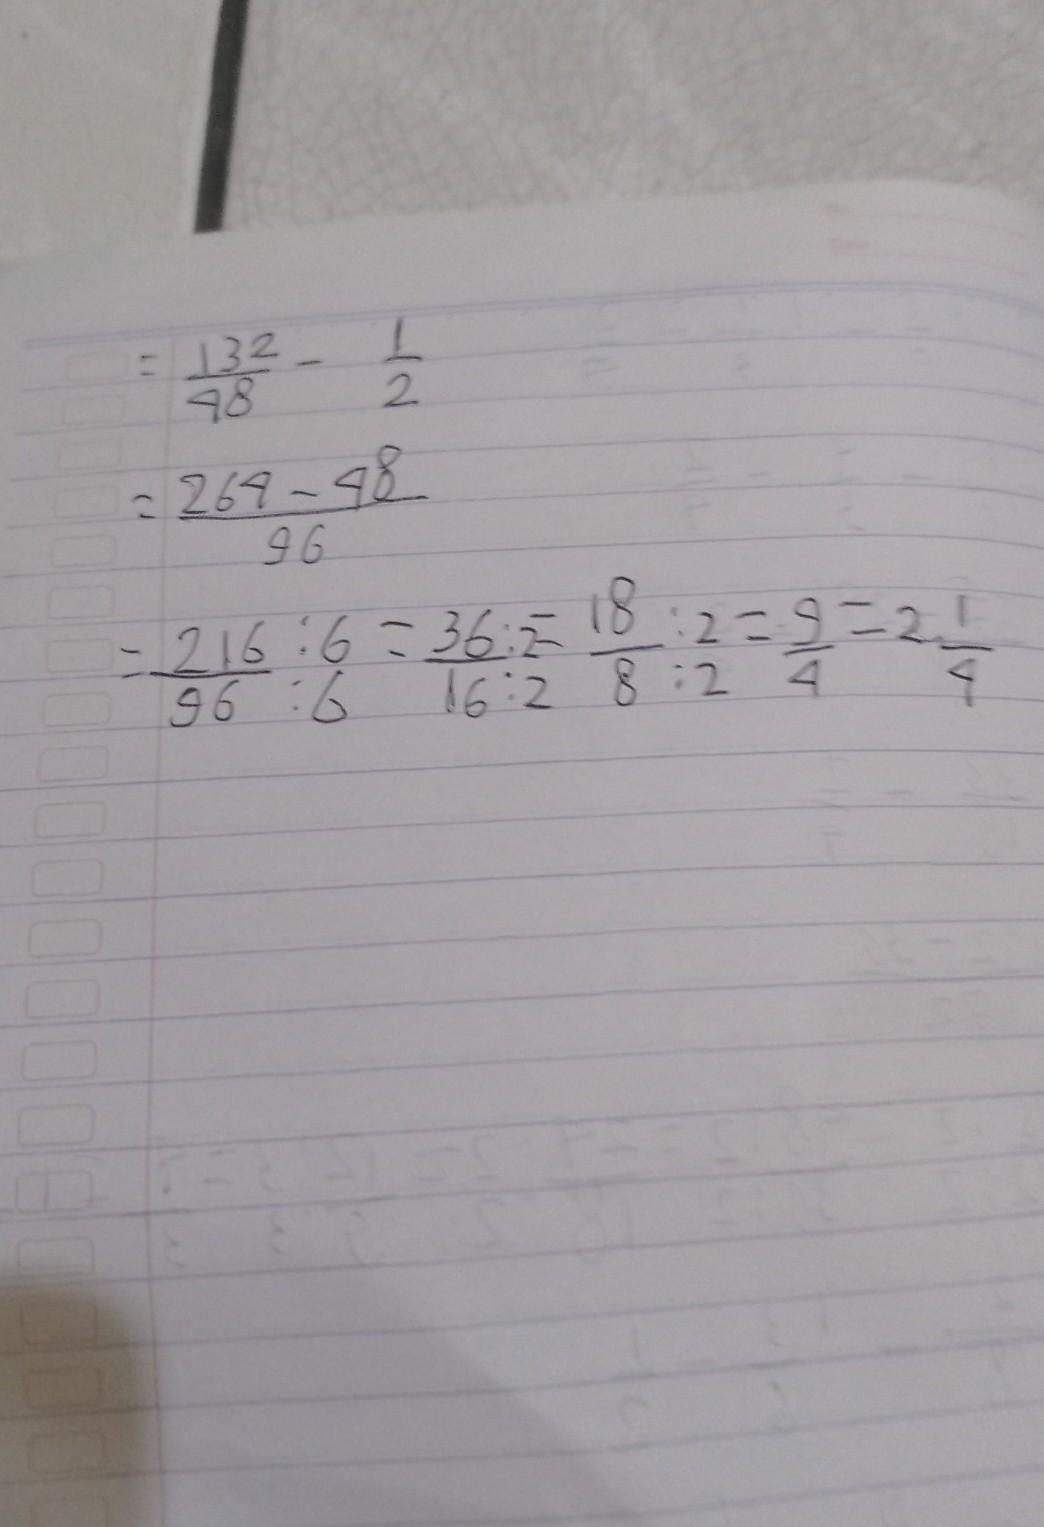 = 132/48 - 1/2
= 264 - 48/96
= 216 : 6/96 : 6 = 36 : 2/16 : 2 = 18 : 2/8 : 2 = 9/4 = 2 1/4